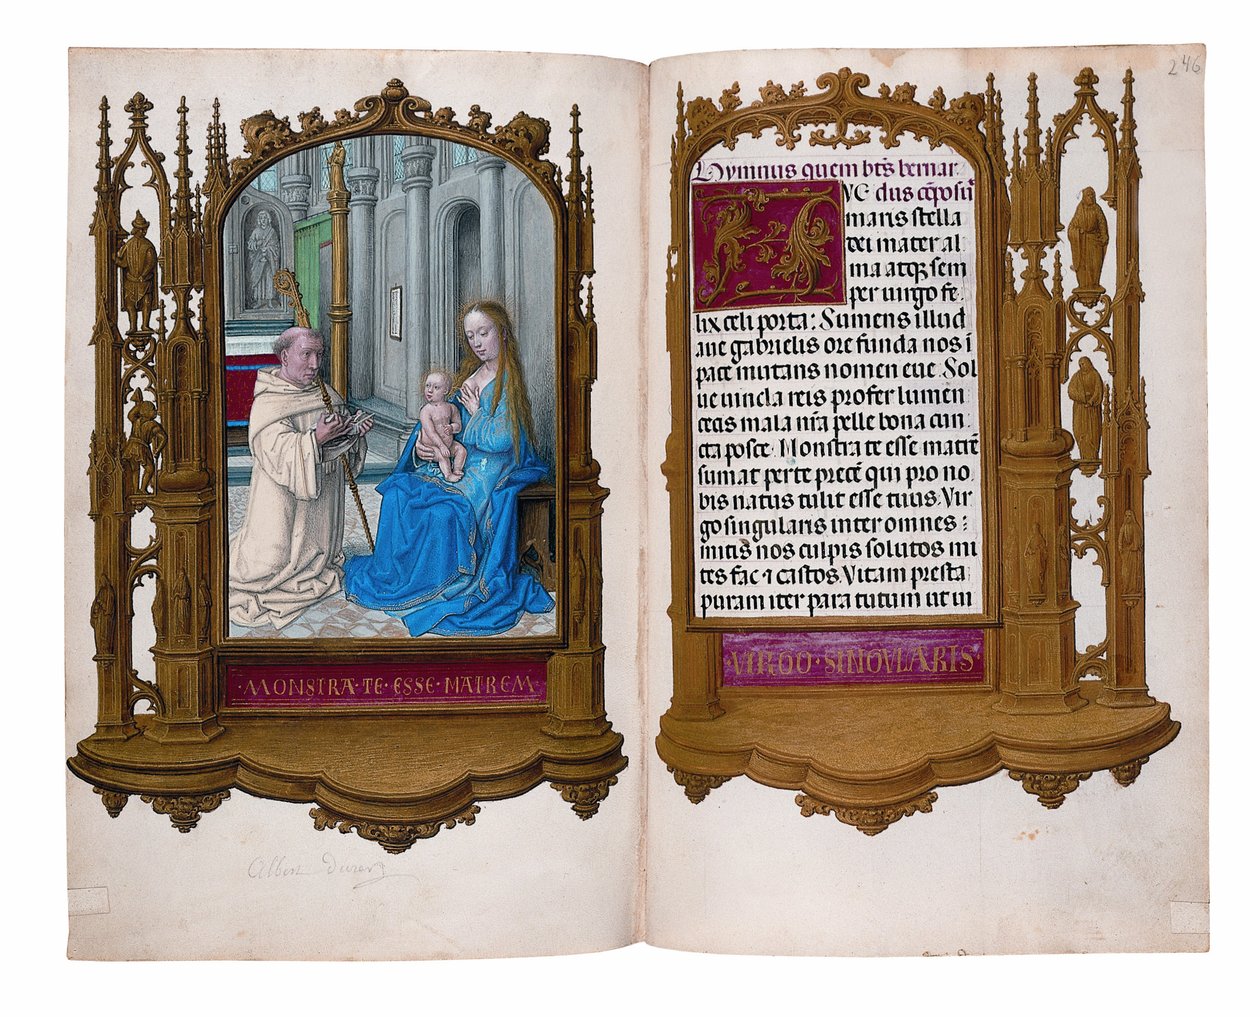 ·MONSTRA·TE·ESSE·MATREM·
Albert Durer
246
Hymnus quem bt̄s bernar
AVE dus cōposuı̄t
maris stella
dei mater al
ma atqꝫ sem
per uirgo fe
lix celi porta: Sumens illud
aue gabrielis ore funda nos ī
pace mutans nomen eue Sol
ue uincla reis profer lumen
cecis mala nr̄a pelle bona cun
cta posce. Monstra te esse matrē
sumat per te precē qui pro no
bis natus tulit esse tuus. Vir
go singularis inter omnes :
mitis nos culpis solutos mi
tes fac ⁊ castos. Vitam presta
puram iter para tutum ut ui
·VIRGO·SINGVLARIS·